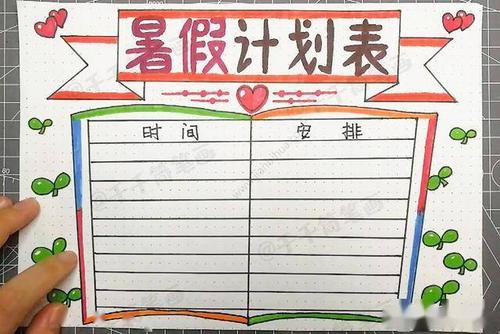 暑假计划表
时间 安排
@千千简笔画